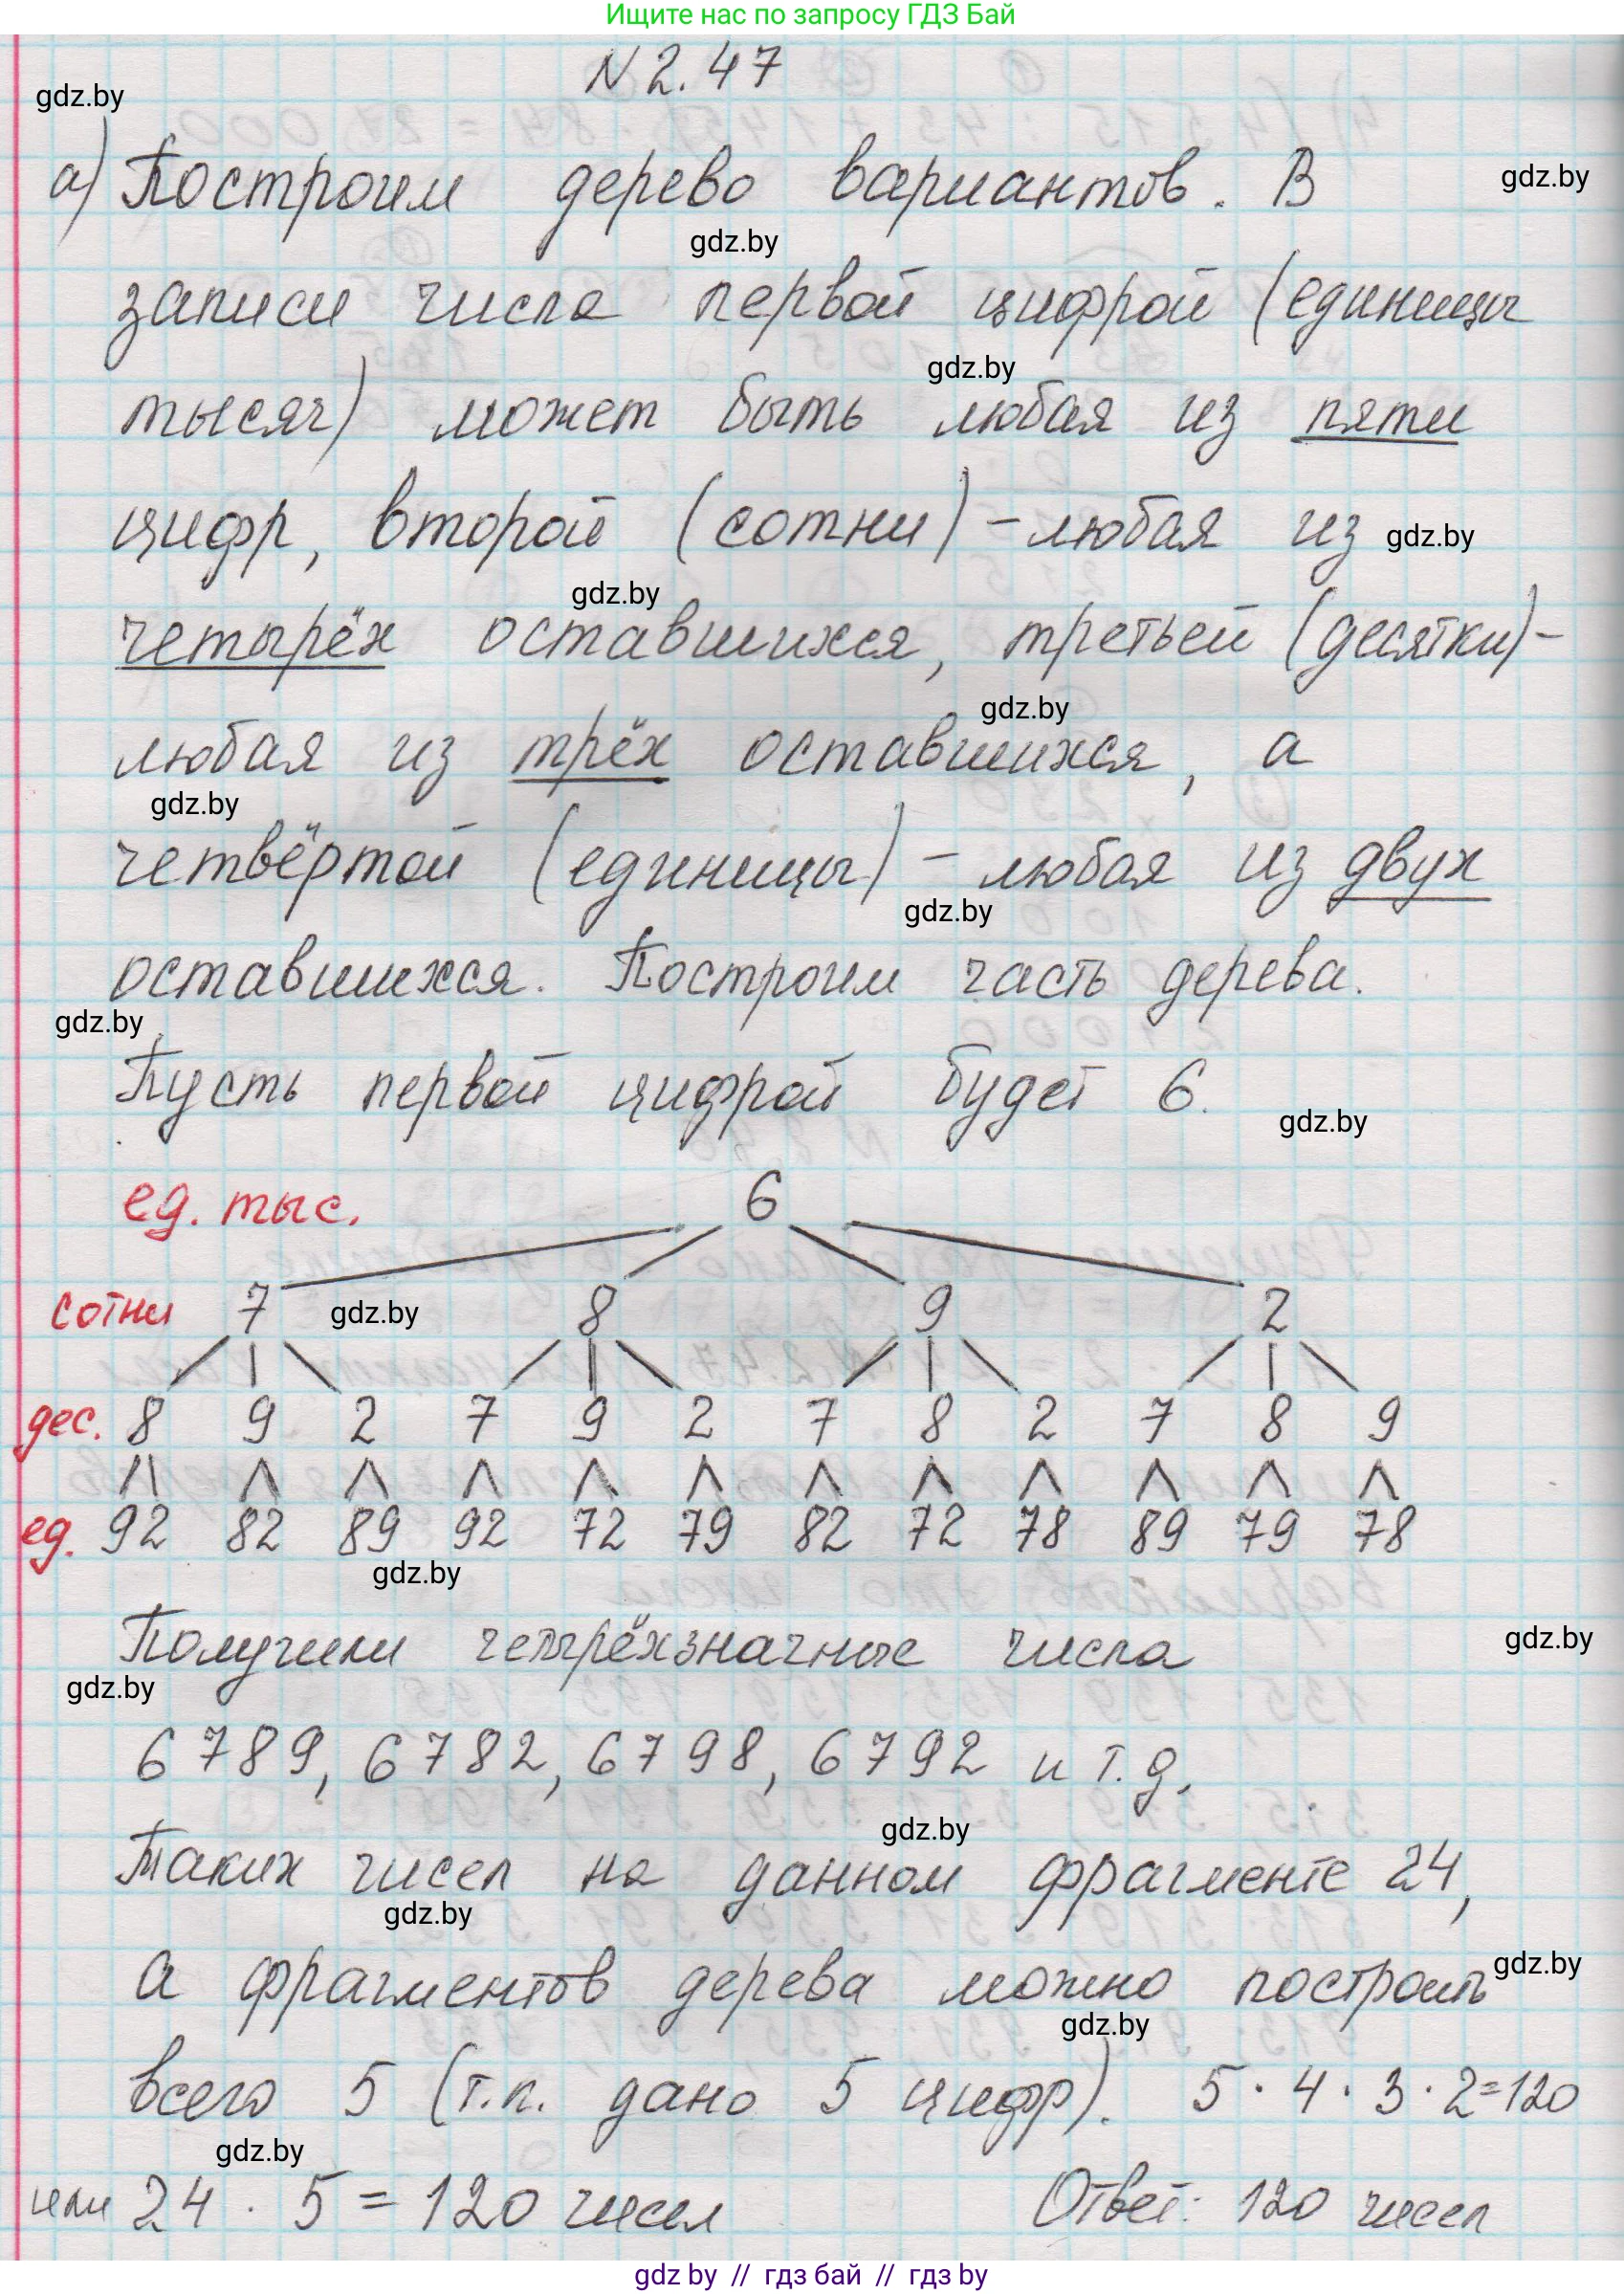 Ищите нас по запросу ГДЗ Бай
N 2.47
gdz.by
а) Построим дерево вариантов. В
gdz.by
gdz.by
записи числа первой цифрой (единицы
gdz.by
тысяч) может быть любая из пяти
цифр, второй (сотни) - любая из
gdz.by
gdz.by
четырёх оставшихся, третьей (десятки) -
gdz.by
любая из трёх оставшихся, а
gdz.by
четвёртой (единицы) - любая из двух
gdz.by
оставшихся. Построим часть дерева.
gdz.by
Пусть первой цифрой будет 6.
gdz.by
ед. тыс. 6
сотни 7 gdz.by 8 9 2
дес. 8 9 2 7 9 2 7 8 2 7 8 9
ед. 92 82 89 92 72 79 82 72 78 89 79 78
gdz.by
Получили четырёхзначные числа
gdz.by
gdz.by
6789, 6782, 6798, 6792 и т.д.
gdz.by
Таких чисел на данном фрагменте 24,
gdz.by
а фрагментов дерева можно построить
gdz.by
gdz.by
всего 5 (т.к. дано 5 цифр). 5 · 4 · 3 · 2 = 120
gdz.by
или 24 · 5 = 120 чисел Ответ: 120 чисел
gdz.by // гдз бай // гдз by